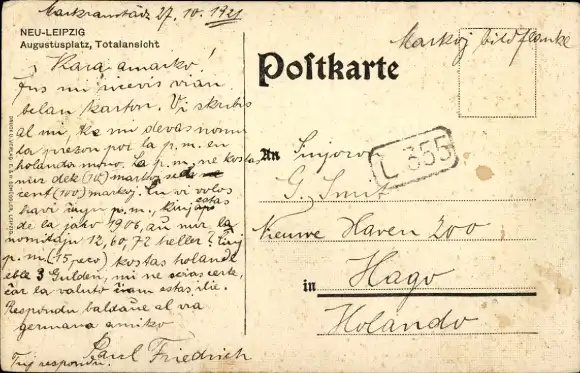 Markranstädt 27. 10. 1921
NEU-LEIPZIG
Augustusplatz, Totalansicht
Markoj bildflanke
Postkarte
Kara amarko!
Ĵus mi ricevis vian
belan karton. Vi skribis
al mi, ke mi devas nomi
la prezon poj la p. m. en
holanda mono. La p. m. ne kostas
nur dek (10) markoj sed
cent (100) markoj. Ĉu vi volos
havi ĉiujn p. m., kiuj estas
de la jaro 1906, aŭ nur la
nomitajn 12, 60, 72 heller?
p. m. (15 pecoj) kostas holande
eble 3 Gulden, mi ne scias certe,
ĉar la valuto estas
Respondu baldaŭ al via
germana amiko
Paul Friedrich
Tuj respondu.
An
Sinjoro
L 355
G. Smit
Nieuwe Haven 200
in
Hago
Holando